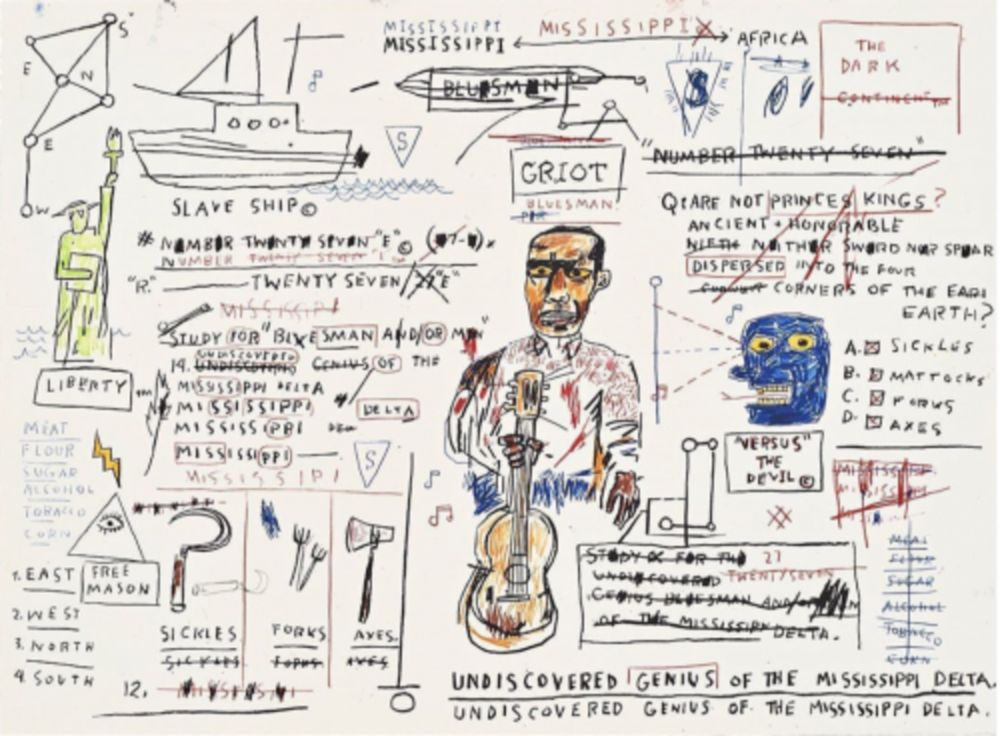 S
E
N
E
W
MISSISSIPPI
MISSISSIPPI
MISSISSIPPI
AFRICA
THE
DARK
CONTINENT
BLUESMAN
S
S
GRIOT
BLUESMAN
"NUMBER TWENTY SEVEN"
SLAVE SHIP©
NUMBER TWENTY SEVEN "E"©
NUMBER TWENTY SEVEN "E"
"R." TWENTY SEVEN
MISSISSIPI
STUDY FOR "BLUESMAN AND/OR MAN"
UNDISCOVERED
14. UNDISCOVERED GENIUS OF THE
MISSISSIPPI DELTA
MISSISSIPPI DELTA
MISSISSIPPI DEL
MISSISSIPPI
MISSISSIPI
S
Q: ARE NOT PRINCES KINGS?
ANCIENT + HONORABLE
NIETH NEITHER SWORD NOR SPEAR
DISPERSED INTO THE FOUR
CORNERS OF THE EARI
EARTH?
A. SICKLES
B. MATTOCKS
C. FORKS
D. AXES
LIBERTY TM
MEAT
FLOUR
SUGAR
ALCOHOL
TOBACCO
CORN
FREE
MASON
1. EAST
2. WEST
3. NORTH
4. SOUTH
SICKLES
SICKLES
FORKS
FORKS
AXES.
AXES
12. MISSISSIPI
"VERSUS"
THE
DEVIL©
STUDY FOR THE 27
UNDISCOVERED TWENTYSEVEN
GENIUS BLUESMAN AND/OR
OF THE MISSISSIPPI DELTA.
MISSISSIPPI
MISSISSIPPI
MEAT
FLOUR
SUGAR
ALCOHOL
TOBACCO
CORN
UNDISCOVERED GENIUS OF THE MISSISSIPPI DELTA.
UNDISCOVERED GENIUS OF THE MISSISSIPPI DELTA.